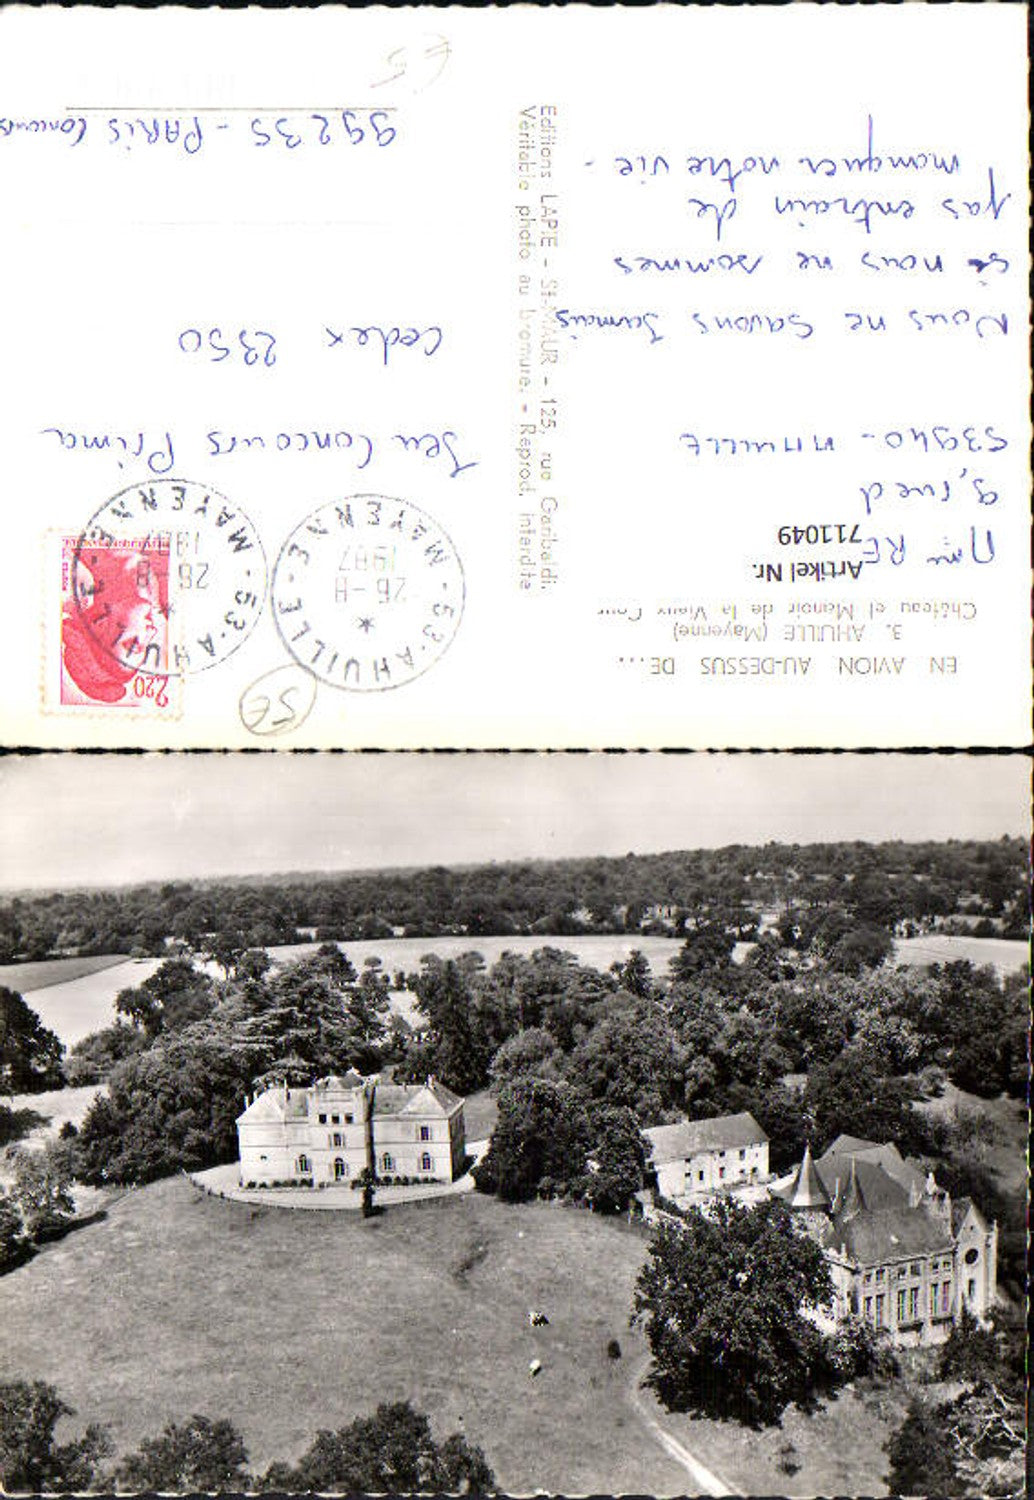 EN AVION AU-DESSUS DE...
3. AHUILLE (Mayenne)
Château et Manoir de la Vieux Cour
Artikel Nr.
711049
Mme RE
9, rue d
53940 - AHUILLE
Nous ne savons Jamais
si nous ne sommes
pas entrain de
manquer notre vie.
Editions LAPIE - St-MAUR - 125, rue Garibaldi.
Véritable photo au bromure. - Reprod. interdite
5€
2,20
53-AHUILLE-E
MAYENNE
26-8
1987
53-AHUILLE-E
MAYENNE
26-8
1987
Jeu Concours Prima
Cedex 2350
99235 - PARIS Concours
€5